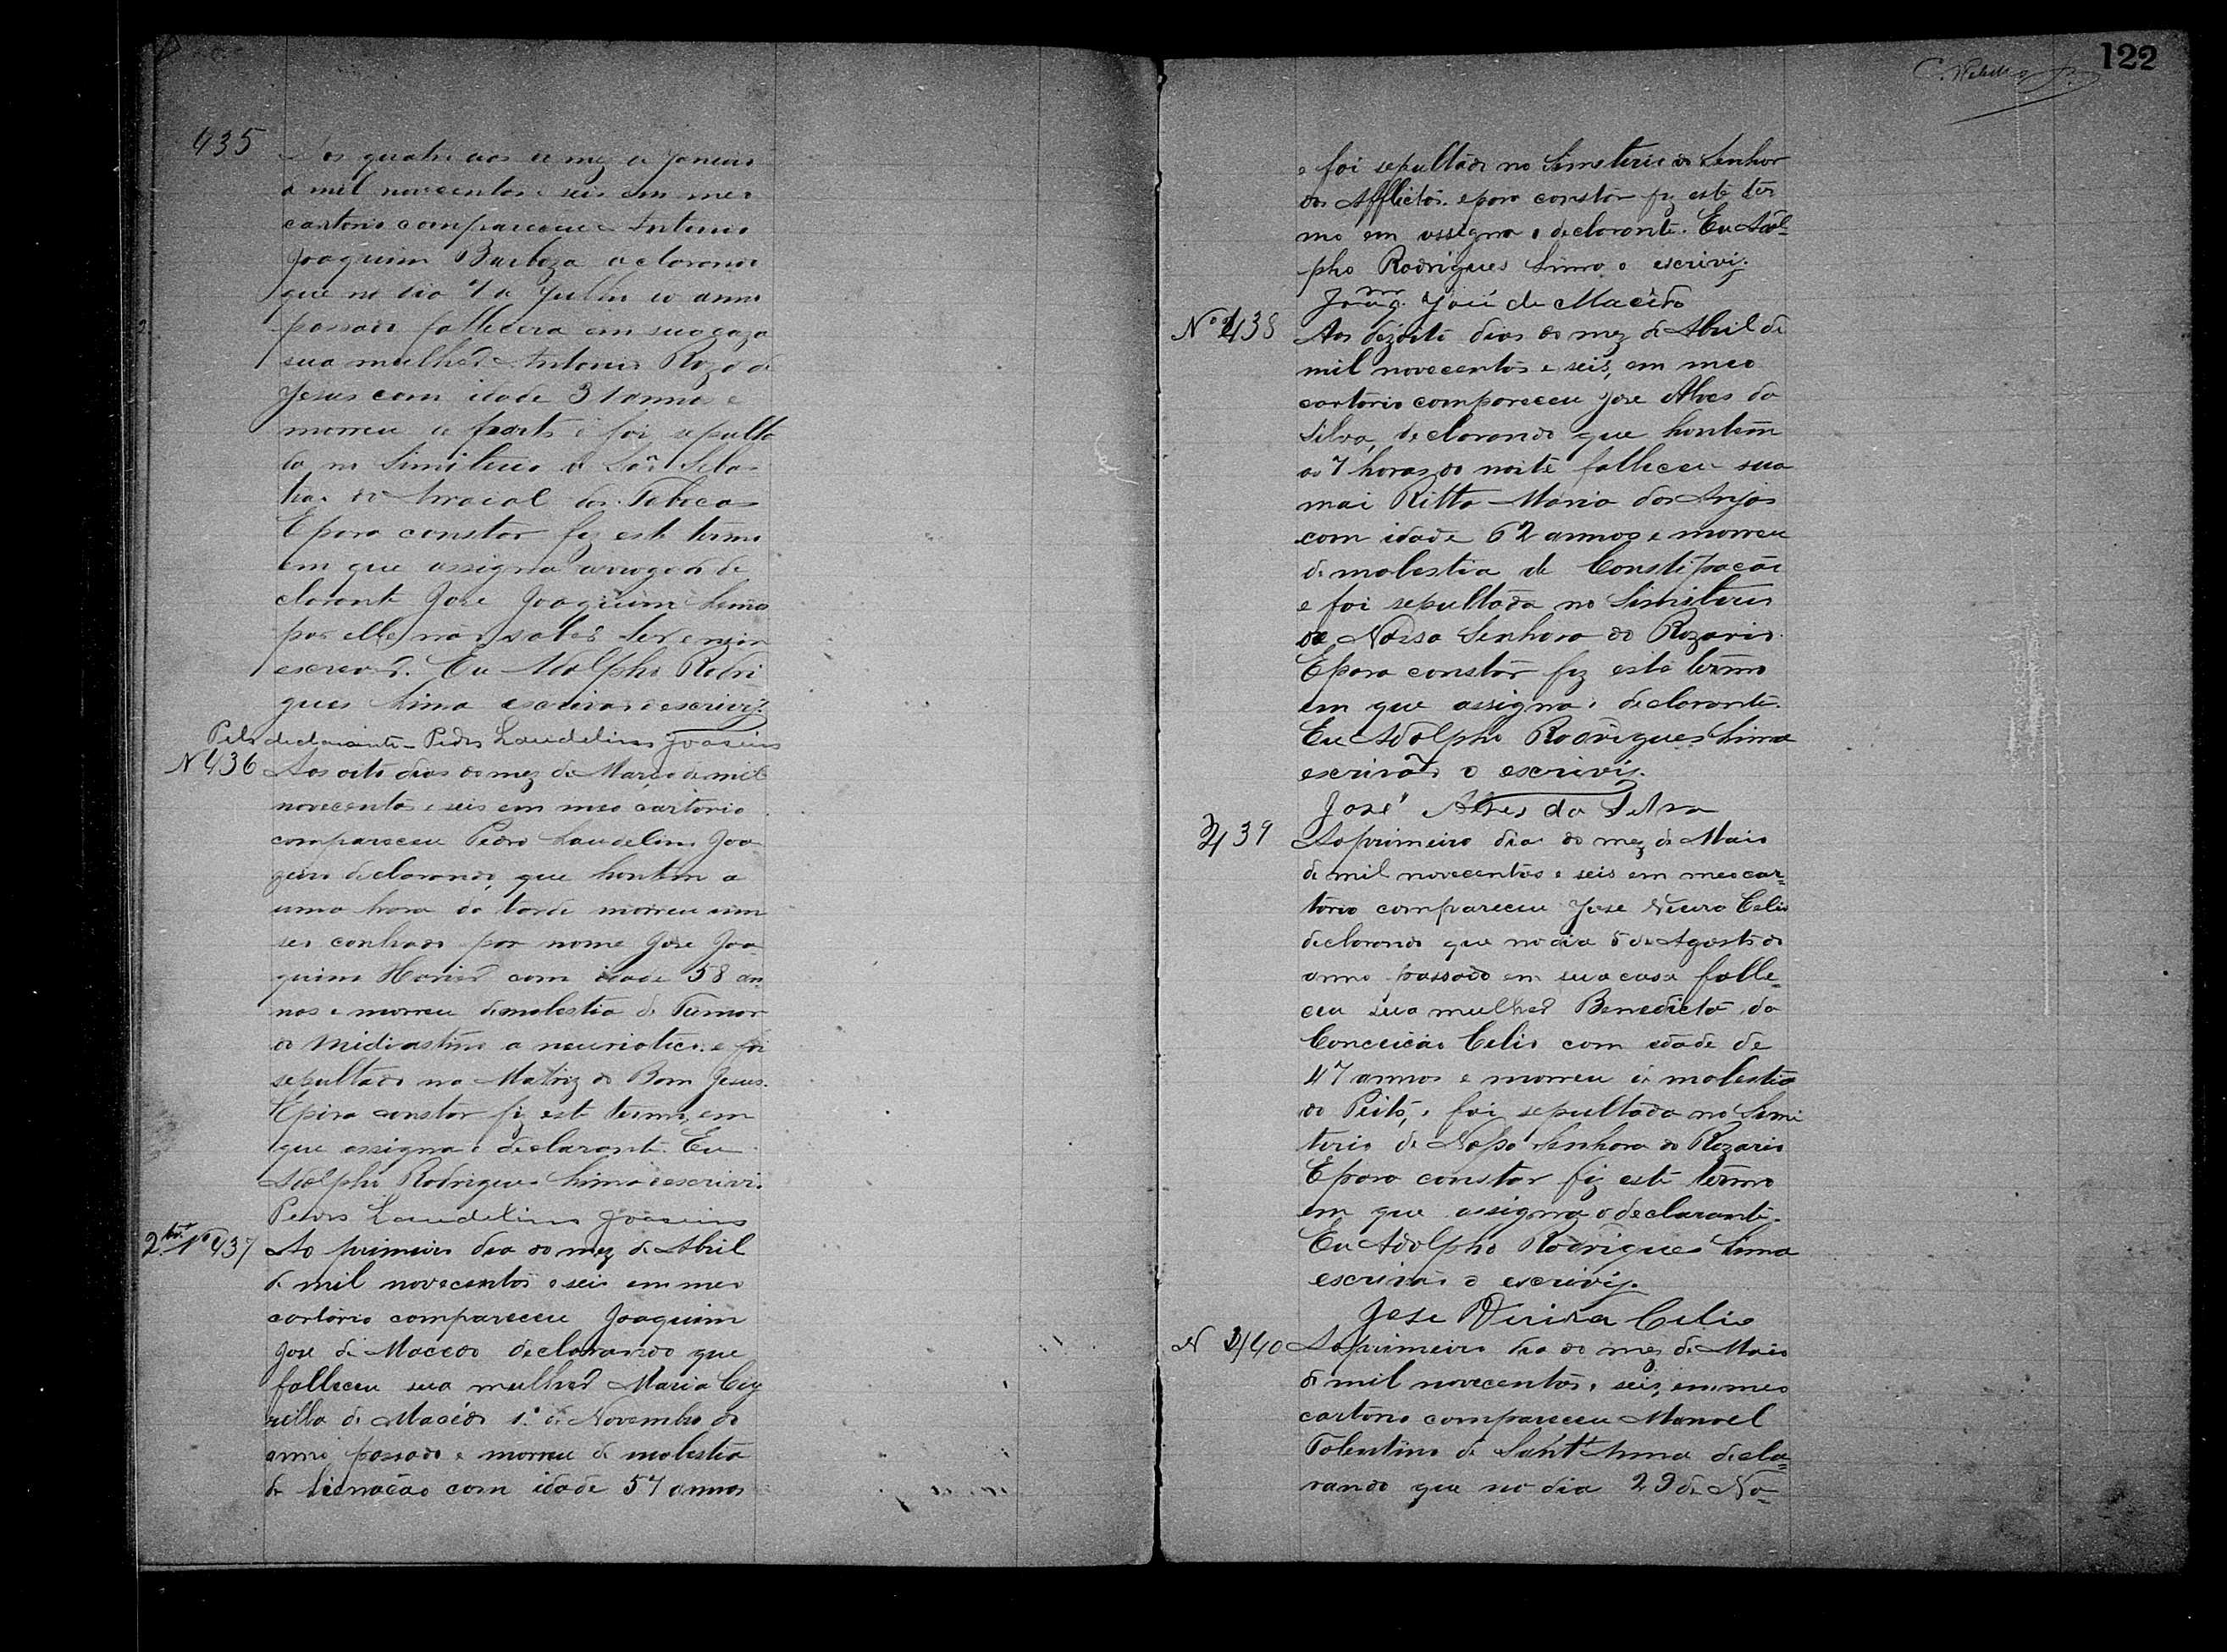 435
Aos quatro dias do mez de Janeiro
de mil novecentos e seis em meo
cartorio compareceu Antonio
Joaquim Barboza declarando
que no dia 7 de Julho do anno
passado fallecera em sua caza
sua mulher Antonia Roza de
Jesus com idade 31 annos e
morreu de parto e foi sepulta
da no Simiterio de São Sebas
tião do Arraial das Tabocas
E para constar fiz este termo
em que assigna arrogo do de
clarante José Joaquim Lima
por elle não saber ler e nem
escrever. Eu Adolpho Rodri
gues Lima escrivão o escrivij.
Pelo declarante - Pedro Laudelino Joaseiro
N 436 Aos oito dias do mez de Março de mil
novecentos e seis em meo cartorio
compareceu Pedro Laudelino Joa
zeiro declarando, que hontem a
uma hora da tarde morreu um
seo cunhado por nome José Joa
quim com idade 58 an=
nos e morreu de molestia de Tumor
do Midiastino e foi
sepultado na Matriz do Bom Jesus.
E para constar fiz este termo, em
que assigna o declarante. Eu
Adolpho Rodrigues Lima o escrivi.
Pedro Laudelino Joaseiro
2ª Nº 437 Ao primeiro dia do mez de Abril
de mil novecentos e seis em meo
cartorio compareceu Joaquim
José de Macedo declarando que
falleceu sua mulher Maria Cey
rilla de Macêdo 1º de Novembro do
anno passado e morreu de molestia
de com idade 57 annos
122
e foi sepultada no Simeterio do Senhor
dos Afflictos. e para constar fiz este ter
mo em assigna o declarante. Eu Adol=
pho Rodrigues Lima o escrivij.
Joaqm. José de Macêdo
Nº 438 Aos dezoito dias do mez de Abril de
mil novecentos e seis, em meo
cartorio compareceu José Alves da
Silva, declarando que hontem
as 7 horas da noite falleceu sua
mai Ritta Maria dos Anjos
com idade 62 annos e morreu
de molestia de Constipação
e foi sepultada no Simiterio
de Nossa Senhora do Rozario.
E para constar fiz este termo
em que assigna o declarante.
Eu Adolpho Rodrigues Lima
escrivão o escrivij.
José Alves da Silva
439 Ao primeiro dia do mez de Maio
de mil novecentos e seis em meo car=
torio compareceu José Celis
declarando que no dia 5 de Agosto do
anno passado em sua casa falle=
ceu sua mulher Benedicta da
Conceição Celis com idade de
47 annos e morreu de molestia
do Peito, e foi sepultada no Simi
terio de Nossa Senhora do Rozario
E para constar fiz este termo
em que assigna o declarante.
Eu Adolpho Rodrigues Lima
escrivão o escrivij.
José Celis
N 440 Ao primeiro dia do mez de Maio
de mil novecentos e seis, em meo
cartorio compareceu Manoel
Tolentino de Sant'Anna decla=
rando que no dia 29 de No=